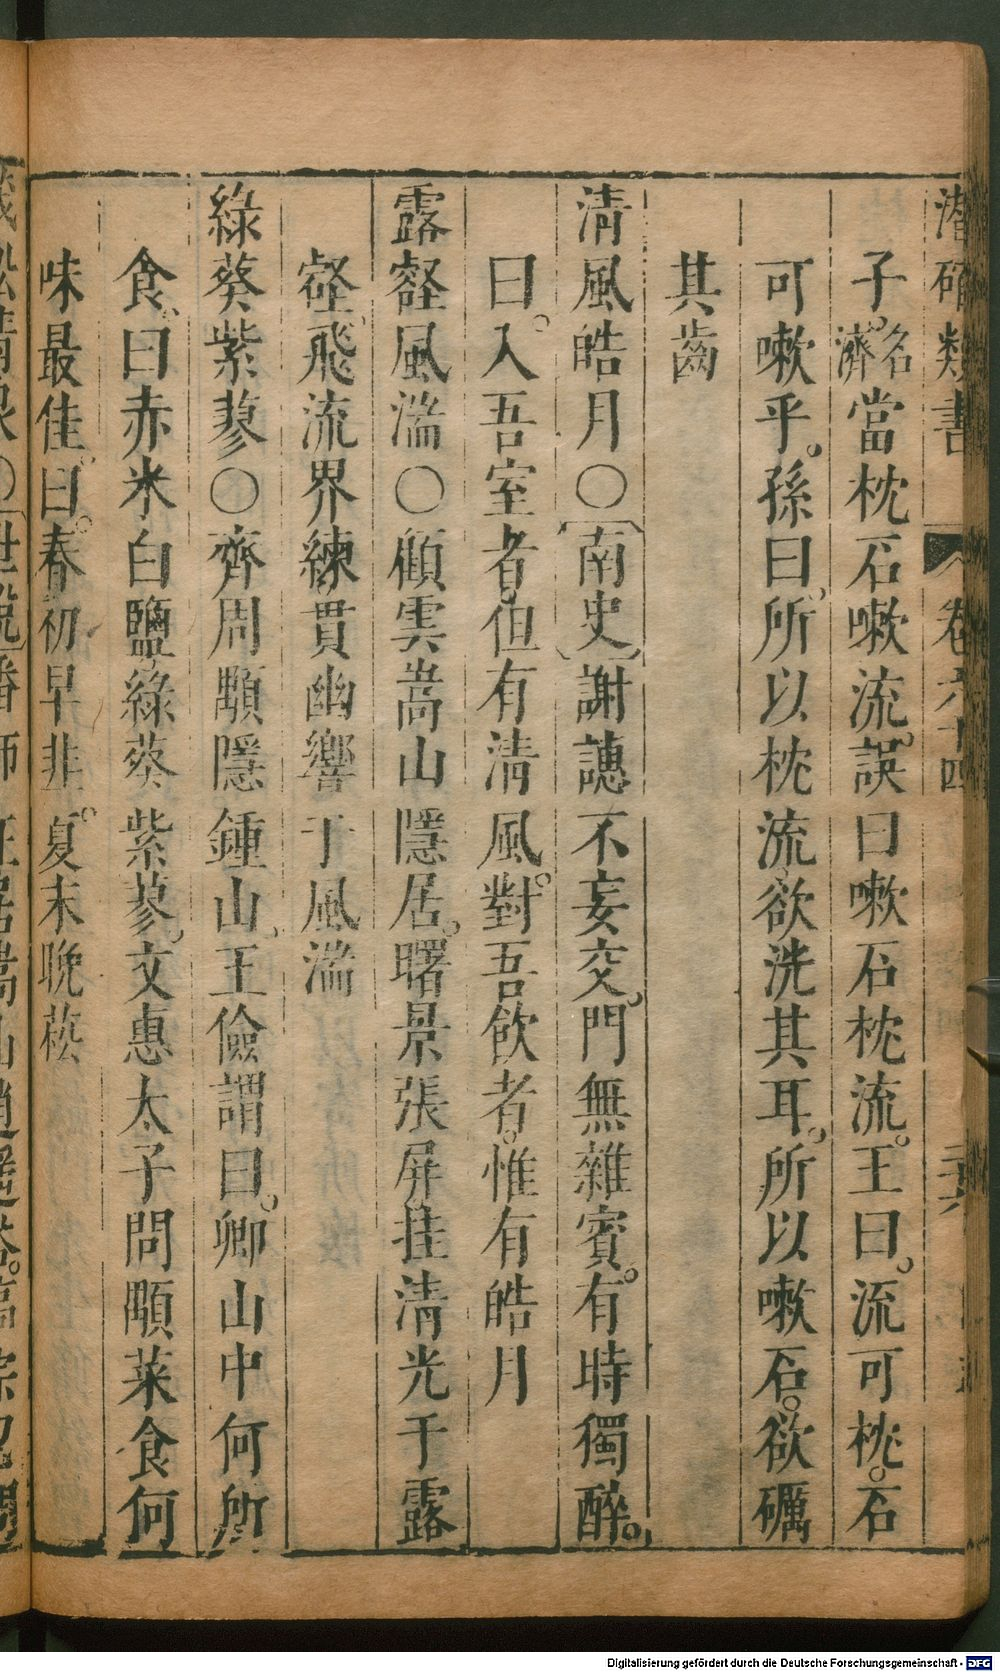 潛確類書 卷六十四 二十六
子名濟當枕石嗽流誤曰嗽石枕流王曰流可枕石
可嗽乎孫曰所以枕流欲洗其耳所以嗽石欲礪
其齒
清風皓月○南史謝譓不妄交門無雜賓有時獨醉
曰入吾室者但有清風對吾飲者惟有皓月
露壑風湍○顧雲嵩山隱居曙景張屏挂清光于露
壑飛流界練貫幽響于風湍
綠葵紫蓼○齊周顒隱鍾山王儉謂曰卿山中何所
食曰赤米白鹽綠葵紫蓼文惠太子問顒菜食何
味最佳曰春初早韭夏末晚菘
Digitalisierung gefördert durch die Deutsche Forschungsgemeinschaft - DFG